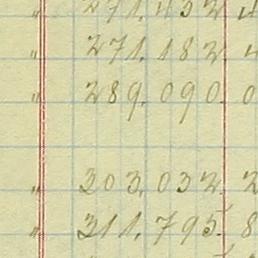 " 271.452 4
" 271.182. 4
" 289.090. 0
" 303.032. 2
" 311.795. 8